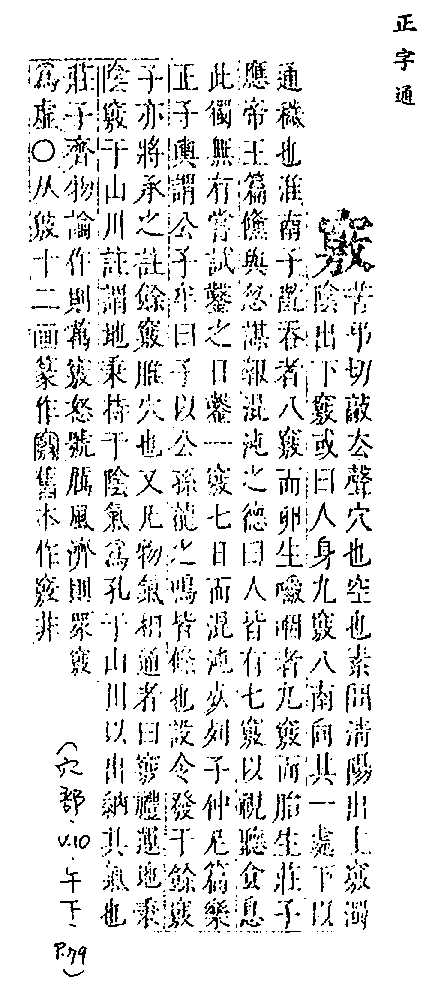 正字通
竅
苦弔切敲去聲穴也空也素問清陽出上竅濁
陰出下竅或曰人身九竅八南向其一處下以
通穢也淮南子齕吞者八竅而卵生嚼咽者九竅而胎生莊子
應帝王篇儵與忽謀報混沌之德曰人皆有七竅以視聽食息
此獨無有嘗試鑿之日鑿一竅七日而混沌死列子仲尼篇樂
正子輿謂公子牟曰子以公孫龍之鳴皆條也設令發于餘竅
子亦將承之註餘竅脽穴也又凡物氣相通者曰竅禮運地秉
陰竅于山川註謂地秉持于陰氣爲孔于山川以出納其氣也
莊子齊物論作則萬竅怒號厲風濟則眾竅
爲虛○从竅十二画篆作竅舊本作竅非
(穴部.V.10.午下.
P.79)